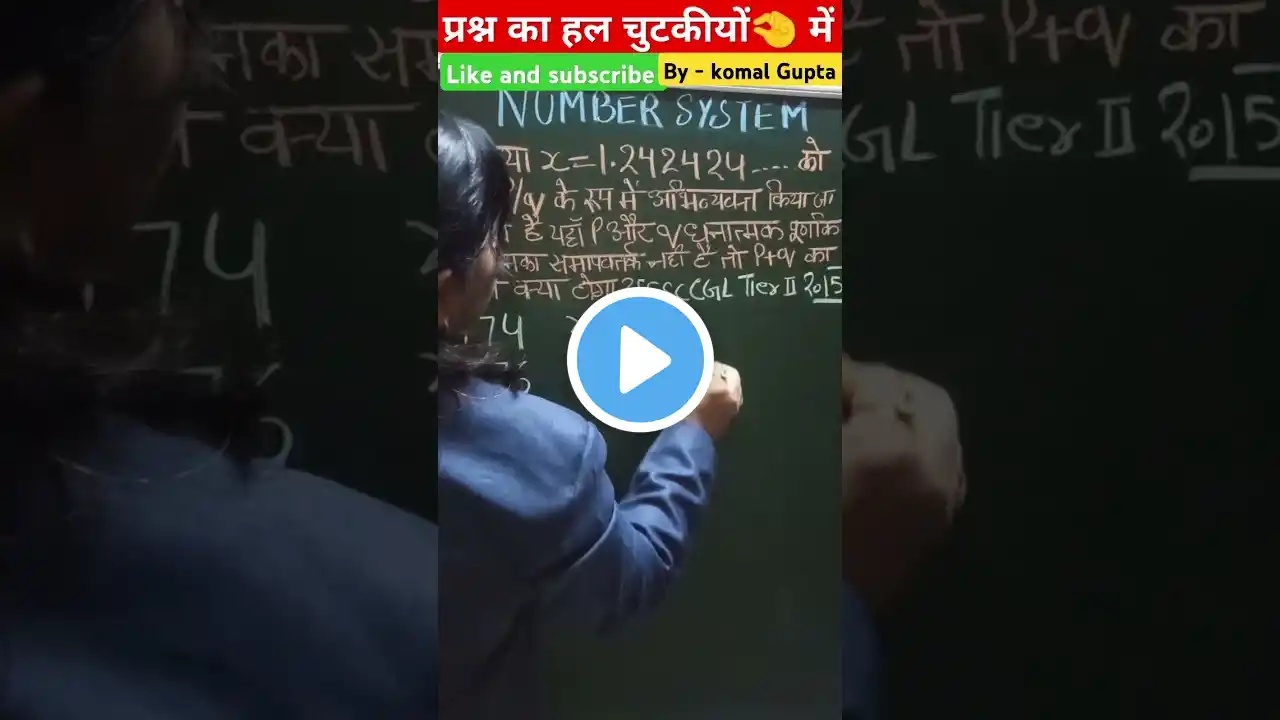 प्रश्न का हल चुटकीयों🤏 में
Like and subscribe
By - komal Gupta
NUMBER SYSTEM
x=1.242424.... को
/q के रूप में अभिव्यक्त किया जा
है यहाँ P और q धनात्मक पूर्णांक
समापवर्तक नही है तो P+q का
क्या होगा? SSC CGL Tier II 2015
74